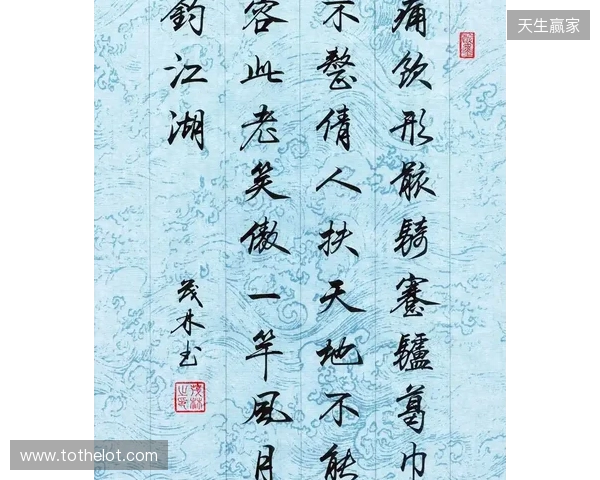 天生赢家
痛飲形骸騎蹇驢葛巾
不整倩人扶天地不能
容此老笑傲一竿風月
釣江湖
茂林书
www.tothelot.com